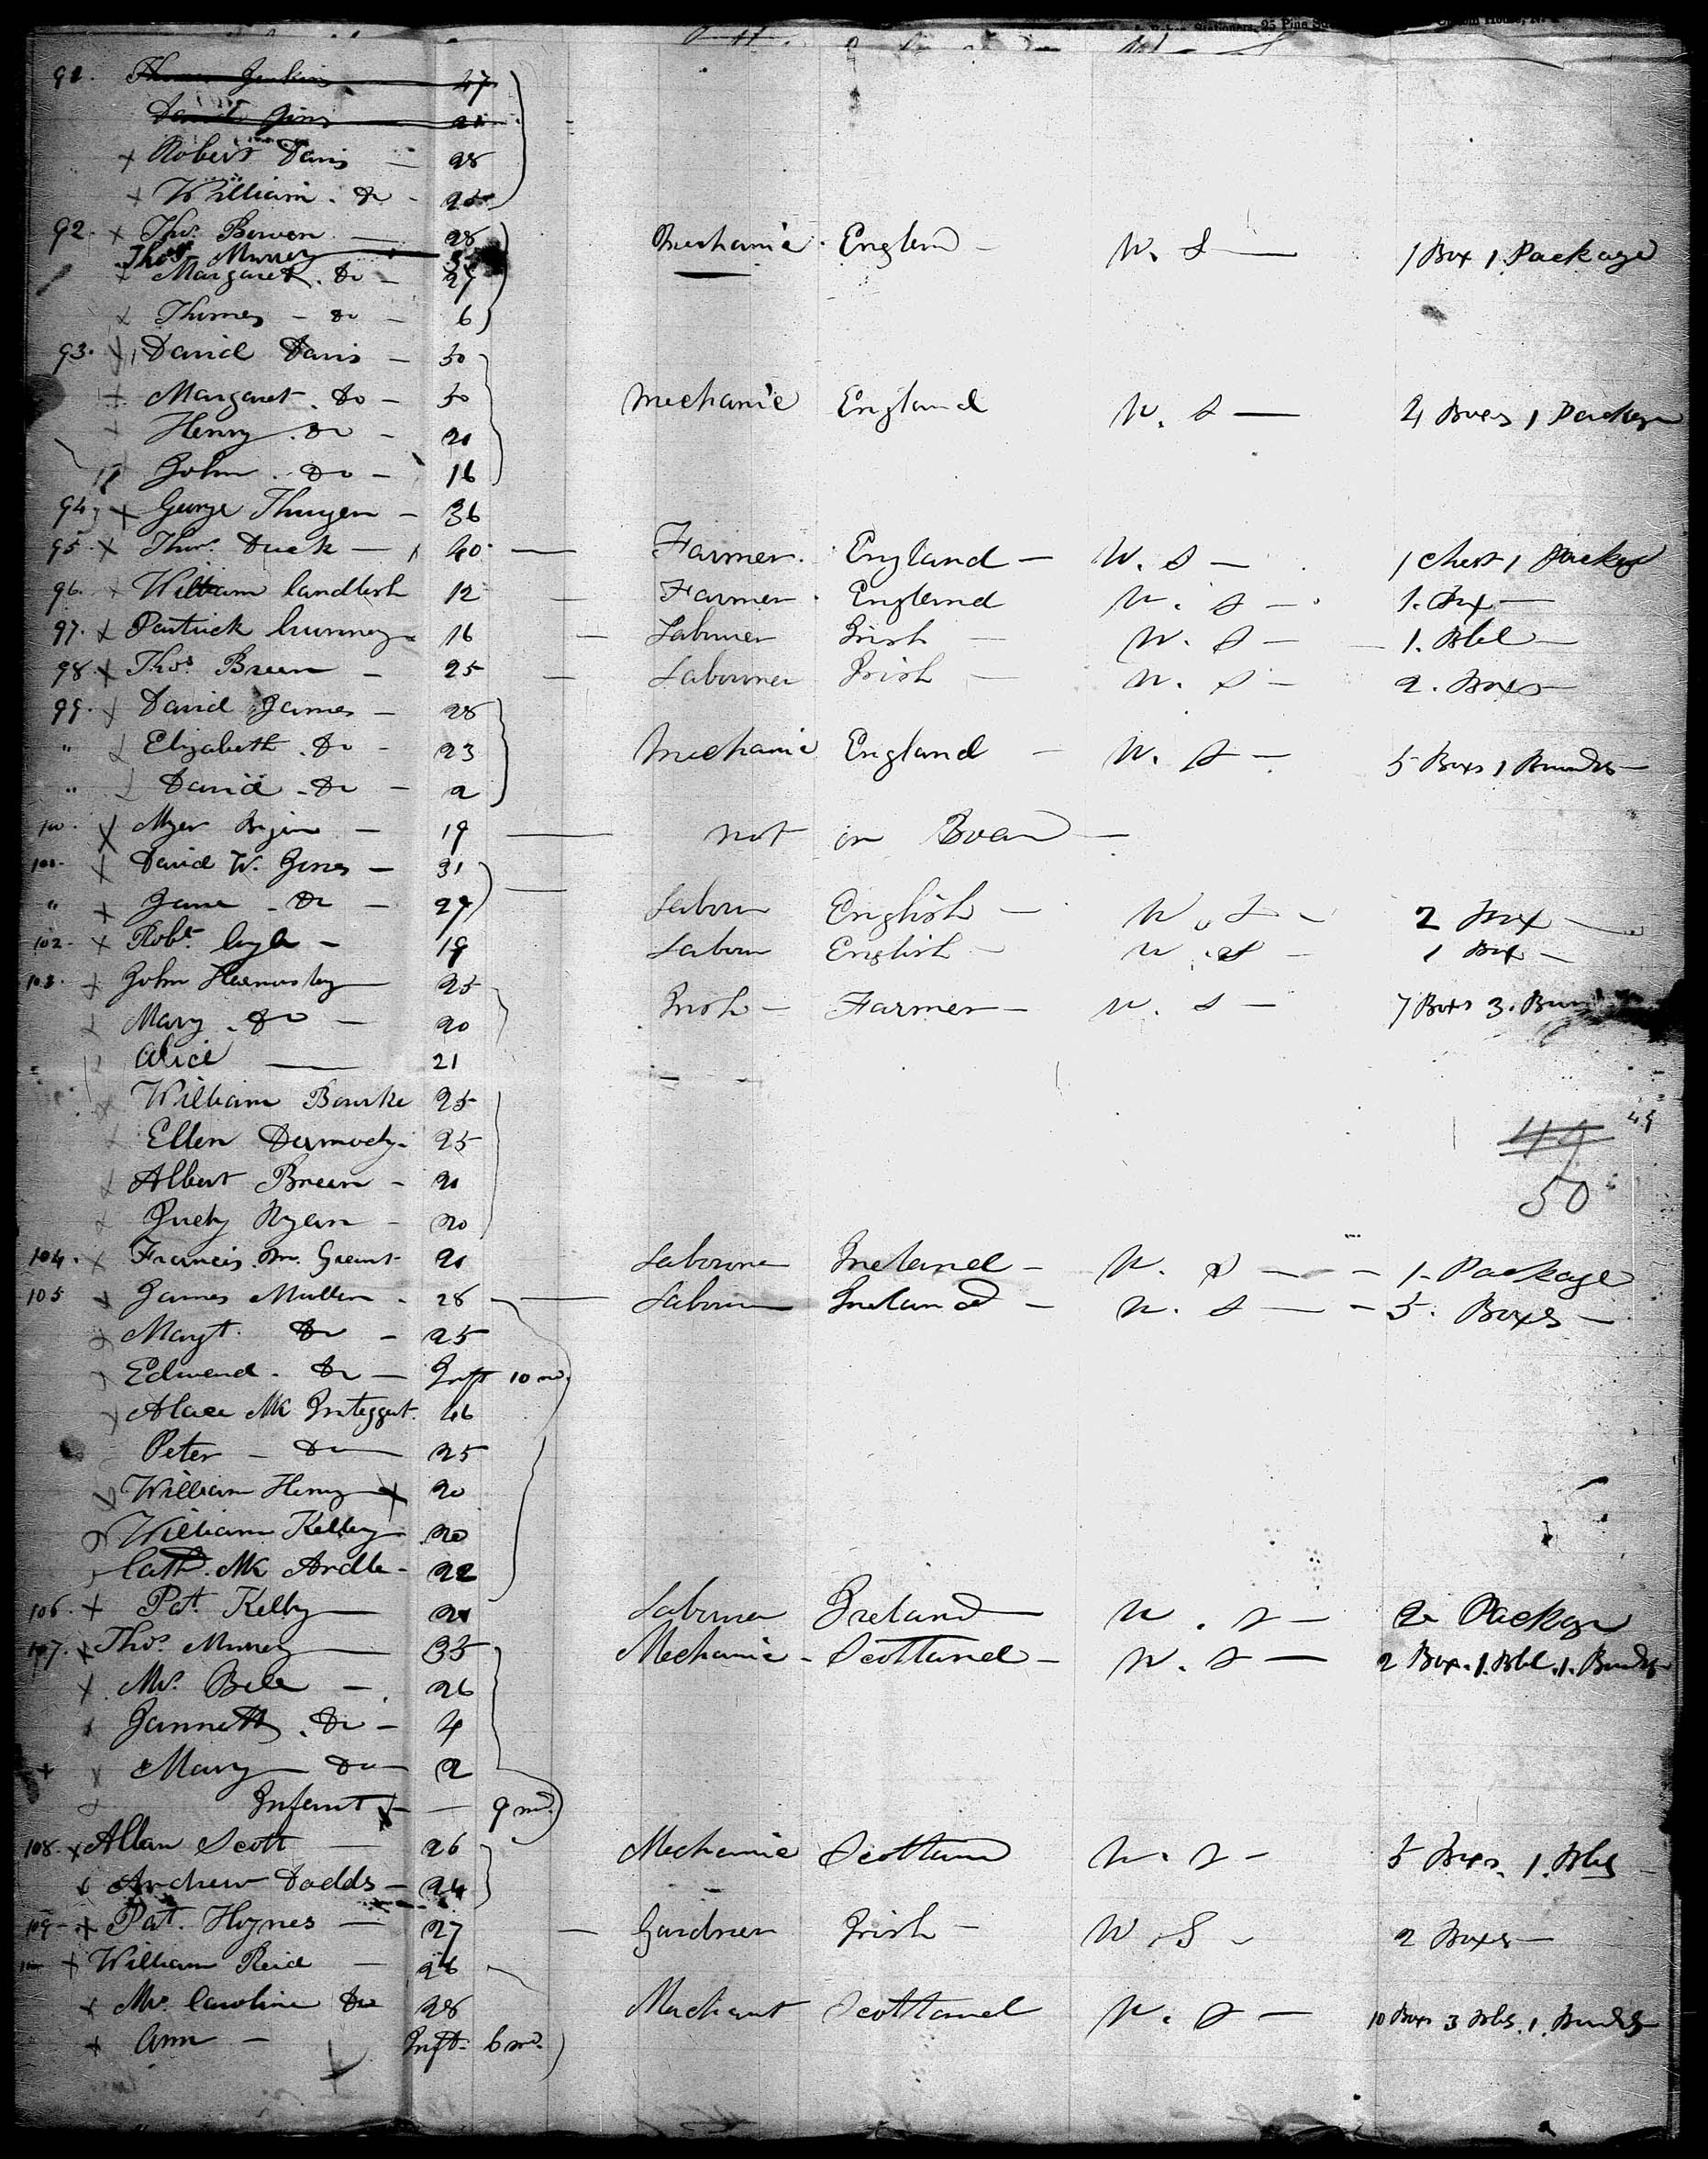 Stationers, 25 Pine
91. Jenkins 47
David 21
x Robert Davis — 28
x William. Do - 25
92. x Thos. Bowen — 28 Mechanic. England — U. S — 1 Box 1 Package
Thos. Murray
x Margaret. Do — 27
Thomas — Do — 6
93. David Davis — 50
Margaret. Do — 50 Mechanic England U. S — 2 Boxes 1 Package
Henry. Do — 20
John. Do — 16
94. x George — 36
95. x Thos. Duck — 40 — Farmer. England — U. S — 1 Chest 1 Package
96. x William 12 — Farmer. England U. S — 1. Box —
97. x Patrick 16 — Labourer Irish — U. S — 1. Bbl —
98. x Thos. Breen — 25 — Labourer Irish — U. S — 2. Boxes —
99. x David James — 28
" Elizabeth. Do — 23 Mechanic England — U. S — 5 Boxes 1 Bundls —
" David. Do — 2
x Myer — 19 — not on Board —
x David W. Jones — 31
" x Jane. Do — 29 Labour English — U. S — 2 Box —
102. x Robt. — 19 Labour English — U. S — 1 Box —
103. x John 25
Mary. Do — 20 Irish — Farmer — U. S — 7 Boxs 3.
Alice — 21
William Bourke 25
Ellen Dermody. 25
49
49
Albert Breen — 20
50
Judy Ryan — 20
104. x Francis. M. Grant 20 Labourer Ireland — U. S — 1. Package
105 x James Mullen. 28 — Labourer Ireland — U. S — 5. Boxes —
Margt. Do — 25
Edward. Do — Inft 10 m.
Alace Mc 46
Peter — Do — 25
William Henry x 20
William Kelley 20
Cath. Mc Ardle — 22
106. x Pat. Kelly — 20 Labourer Ireland — U. S — 2 Package
107. x Thos. Murray — 35 Mechanic — Scotland — U. S — 2 Box. 1. Bbl. 1. Bundls
x Mrs. Bell — 26
Jannett. Do — 4
x Mary — Do — 2
Infant — 9 m.
108. x Allan Scott — 26 Mechanic Scotland U. S — 5 Boxs. 1. Bbls
Andrew Dodds — 24
109 — x Pat. Hynes — 27 — Gardner Irish — U. S — 2 Boxes —
x William Reid — 26
x Mrs. Caroline Do 28 Merchant Scotland U. S — 10 Boxs 3 Bbls. 1. Bundls
x Ann — Inft. 6 m.